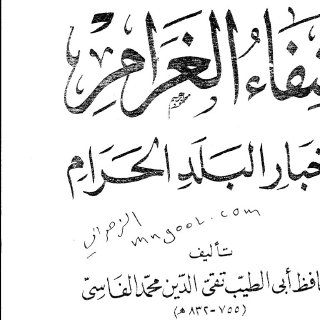 شِفَاءُ الغَرَامِ
خبارِ البَلَدِ الحَرَامِ
الزهراني
mngool.com
تأليف
افظ أبى الطيّب تقىّ الدّين محمّد الفاسىّ
(٧٥٥ - ٨٣٢ هـ)